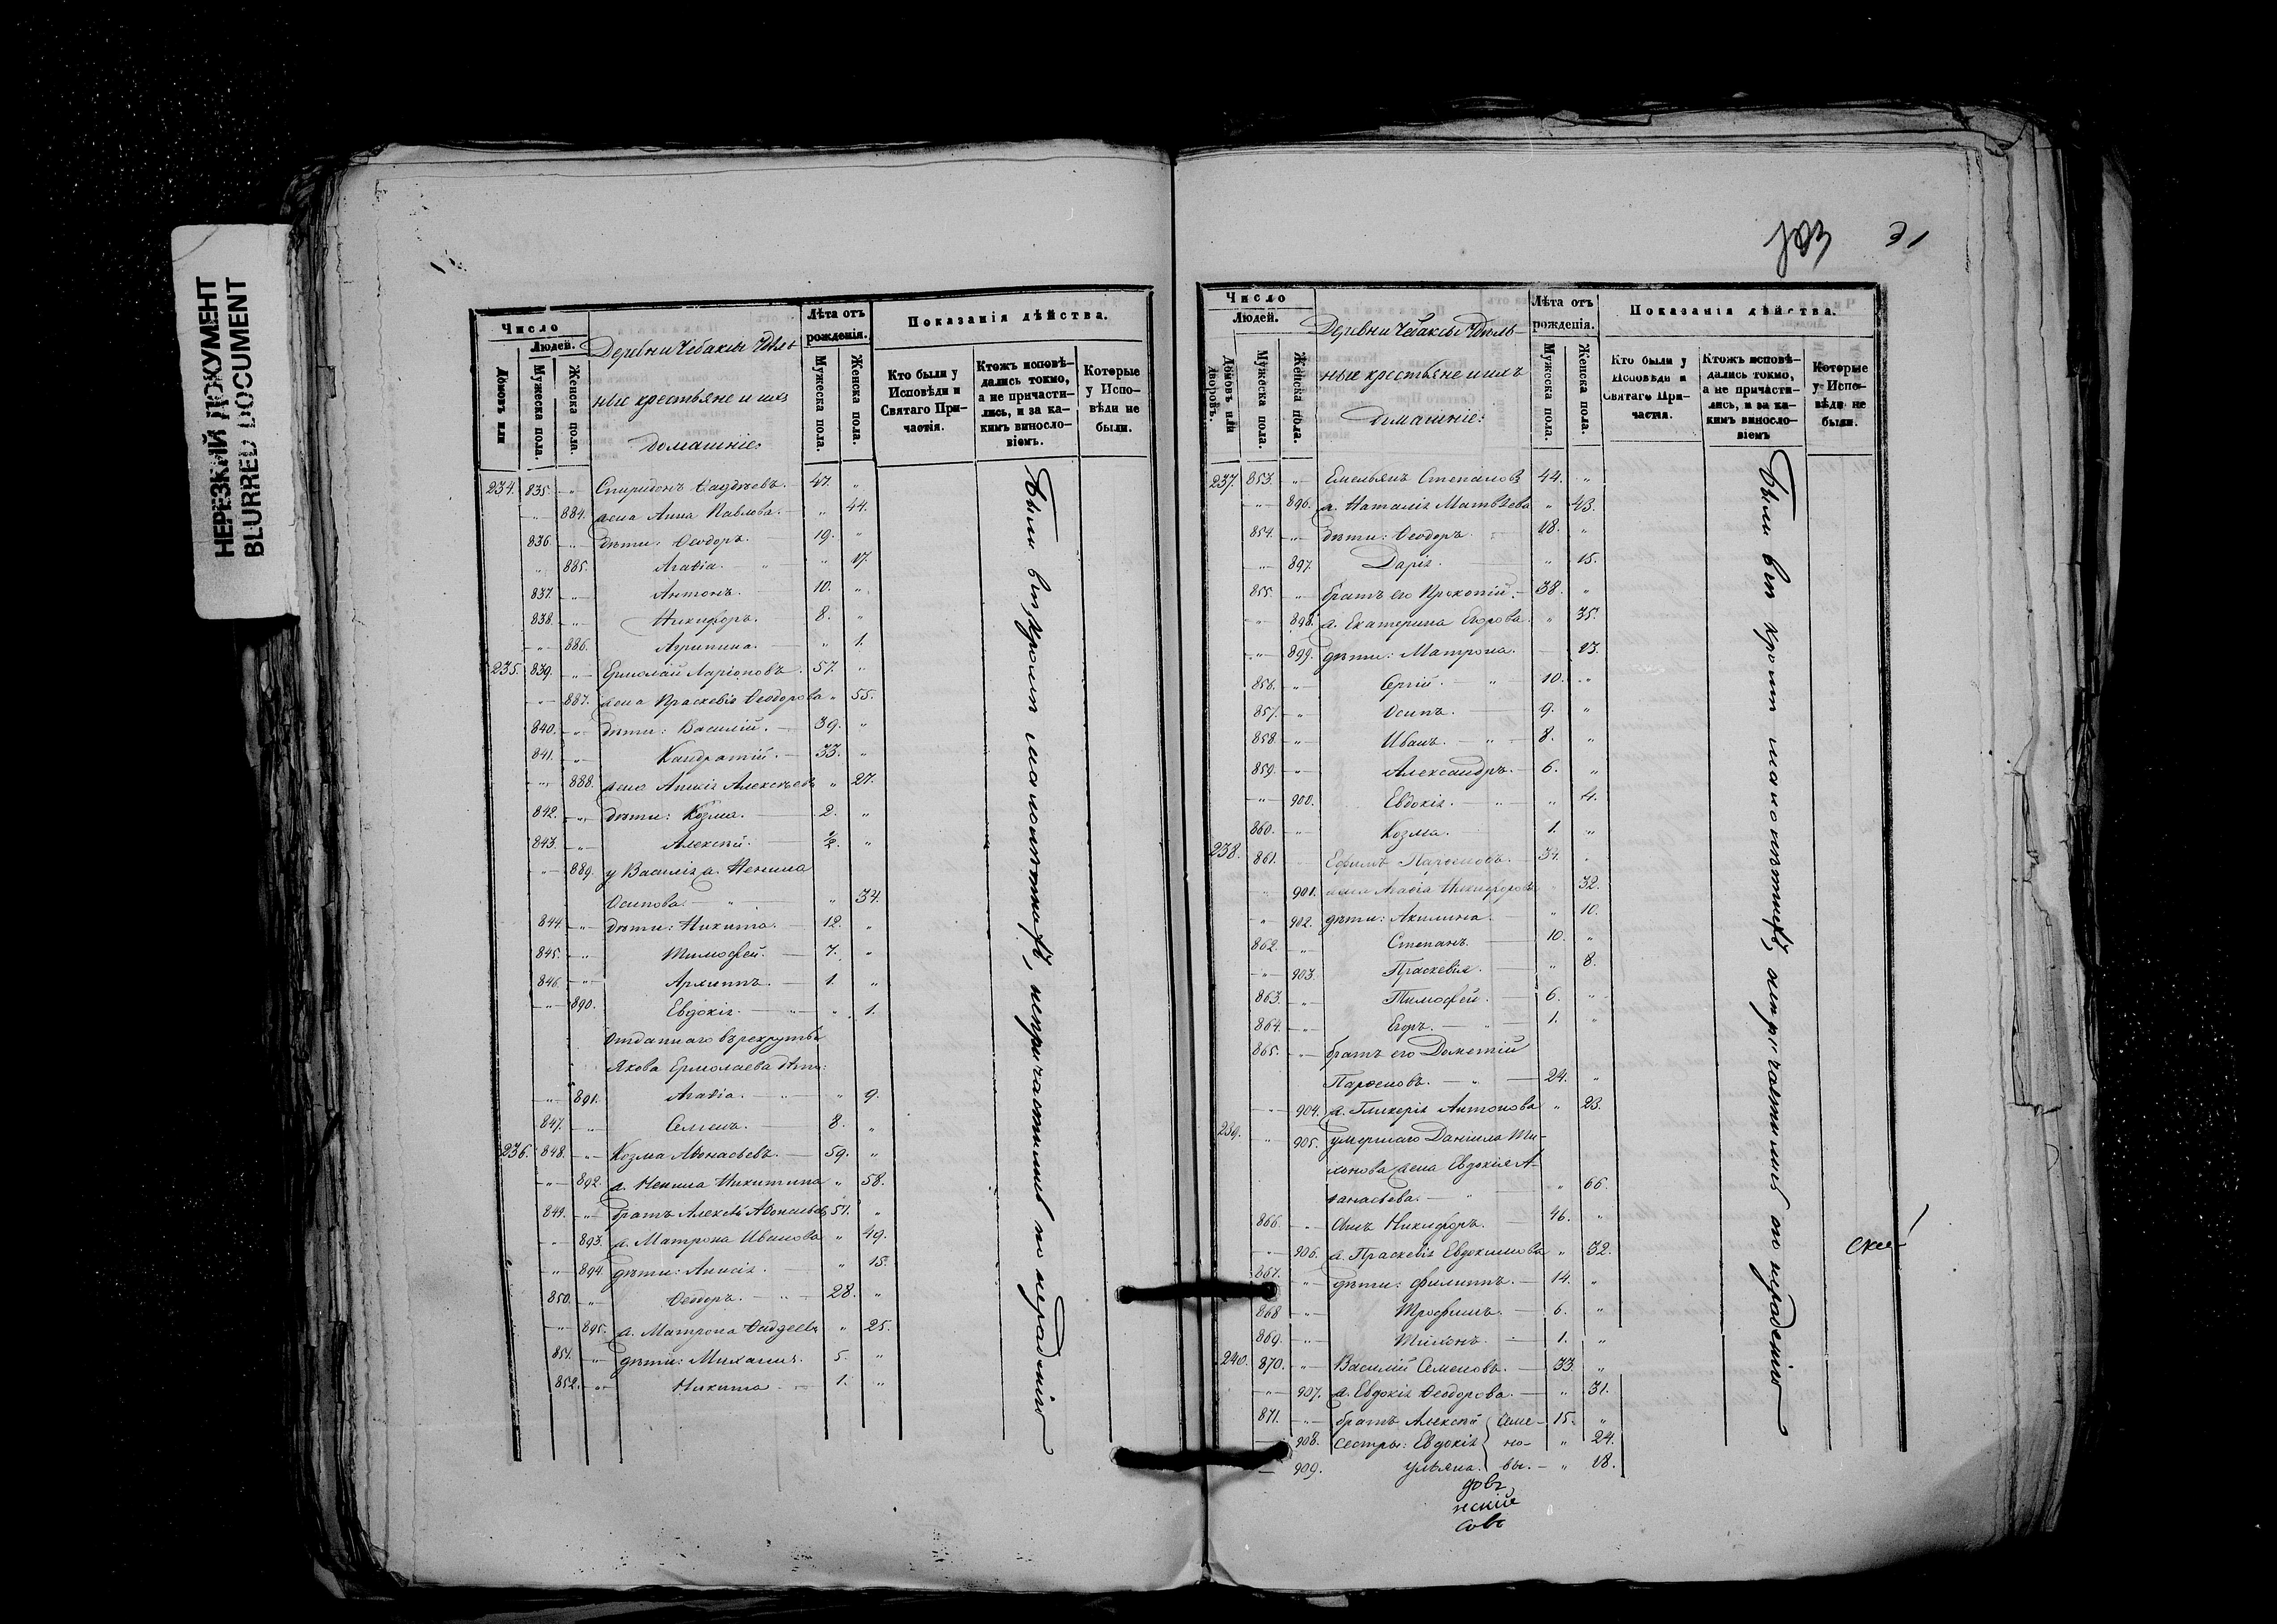 НЕРЕЗКИЙ ДОКУМЕНТ
BLURRED DOCUMENT
Число
Людей.
Домовъ или
Мужеска пола.
Женска пола.
Деревни Чебаксы Удѣль
ные крестьяне и ихъ
домашніе:
Лѣта отъ
рожденія.
Мужеска пола.
Женска пола.
Показанія дѣйства.
Кто были у
Исповѣди и
Святаго При-
частія.
Ктожъ исповѣ-
дались токмо,
а не причасти-
лись, и за ка-
кимъ винословіемъ.
Которые
у Испо-
вѣди не
были.
234. 835. „ Спиридонъ Ѳаддѣевъ. 47. „
„ 884. жена Анна Павлова. „ 44.
836. „ дѣти: Ѳеодоръ. 19. „
„ 885. Агаѳія. „ 17.
837. „ Антонъ. 10. „
838. „ Никифоръ. 8. „
„ 886. Агрипина. „ 1.
235. 839. „ Ермолай Ларіоновъ. 57. „
„ 887. жена Праскевія Ѳеодорова „ 55.
840. „ дѣти: Василій. 39. „
841. „ Кандратій. 33. „
„ 888. жена Анисія Алексѣева „ 27.
842. „ дѣти: Козма. 2. „
843. „ Алексѣй. 1/2. „
„ 889. у Василія ж. Ненила
Осипова. „ 34.
844. „ дѣти: Никита. 12. „
845. „ Тимофей. 7. „
846. „ Архиппъ. 1. „
„ 890. Евдокія. „ 1.
Отданнаго въ рекруты
Якова Ермолаева дѣти:
„ 891. Агаѳія. „ 9.
847. „ Семенъ. 8. „
236. 848. „ Козма Аѳонасьевъ. 59. „
„ 892. ж. Ненила Никитина „ 58.
849. „ братъ Алексѣй Аѳонасьевъ 51. „
„ 893. ж. Матрона Иванова „ 49.
„ 894. дѣти: Анисія. „ 15.
850. „ Ѳеодоръ. 28. „
„ 895. ж. Матрона Ѳаддеева „ 25.
851. „ дѣти: Михаилъ. 5. „
852. „ Никита. 1. „
Были вси, кромя малолѣтныхъ, непричастились по нерадѣнію
31
Число
Людей.
Домовъ или
дворовъ.
Мужеска пола.
Женска пола.
Деревни Чебаксы Удѣль
ные крестьяне и ихъ
домашніе:
Лѣта отъ
рожденія.
Мужеска пола.
Женска пола.
Показанія дѣйства.
Кто были у
Исповѣди и
Святаго При-
частія.
Ктожъ исповѣ-
дались токмо,
а не причасти-
лись, и за ка-
кимъ винословіемъ
Которые
у Испо-
вѣди не
были.
237. 853. „ Емельянъ Степановъ 44. „
„ 896. ж. Наталія Матвѣева „ 43.
854. „ дѣти: Ѳеодоръ. 18. „
„ 897. Дарія. „ 15.
855. „ братъ его Прокопій. 38. „
„ 898. ж. Екатерина Егорова. „ 35.
„ 899. дѣти: Матрона. 13.
856. „ Сергій. 10. „
857. „ Осипъ. 9. „
858. „ Иванъ. 8. „
859. „ Александръ. 6. „
„ 900. Евдокія. „ 4.
860. „ Козма. 1. „
238. 861. Ефимъ Парѳеновъ. 34. „
„ 901. жена Агаѳія Никифорова „ 32.
„ 902. дѣти: Акилина. „ 10.
862. „ Степанъ. 10. „
„ 903. Праскевія. „ 8.
863. „ Тимофей. 6. „
864. „ Егоръ. 1. „
865. „ братъ его Дометій
Парѳеновъ. 24. „
„ 904. ж. Гликерія Антонова „ 23.
239. „ 905. умершаго Даніила Ти-
хонова жена Евдокія А-
ѳанасьева. „ 66.
866. „ сынъ Никифоръ. 46. „
„ 906. ж. Праскевія Евдокимова „ 32.
867. „ дѣти: Филиппъ. 14. „
868 „ Трофимъ. 6. „
869. „ Тихонъ. 1. „
240. 870. „ Василій Семеновъ. 33. „
„ 907. ж. Евдокія Ѳеодорова. „ 31.
871. „ братъ Алексѣй } Семе- 15. „
908. сестры: Евдокія } но- „ 24.
909. Ульяна. } вы. „ 18.
Были вси кромя малолѣтныхъ, непричастились по нерадѣнію